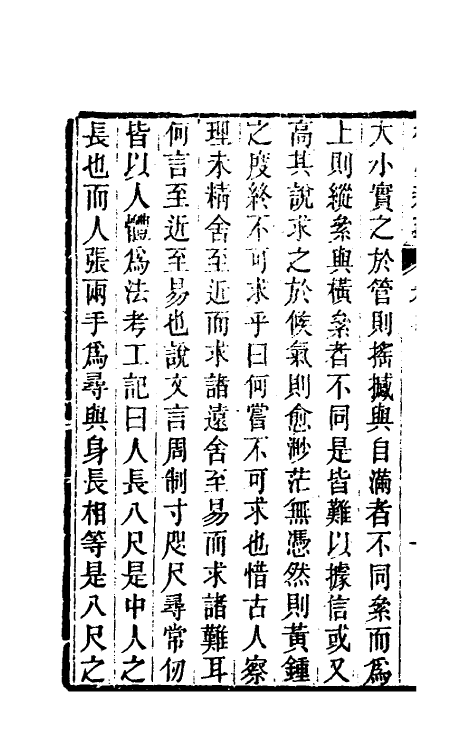 大小實之於管則搖撼與自滿者不同絫而爲
上則縱絫與橫絫者不同是皆難以據信或又
高其說求之於候氣則愈渺茫無憑然則黃鍾
之度終不可求乎曰何嘗不可求也惜古人察
理未精舍至近而求諸遠舍至易而求諸難耳
何言至近至易也說文言周制寸咫尺尋常仞
皆以人體爲法考工記曰人長八尺是中人之
長也而人張兩手爲尋與身長相等是八尺之